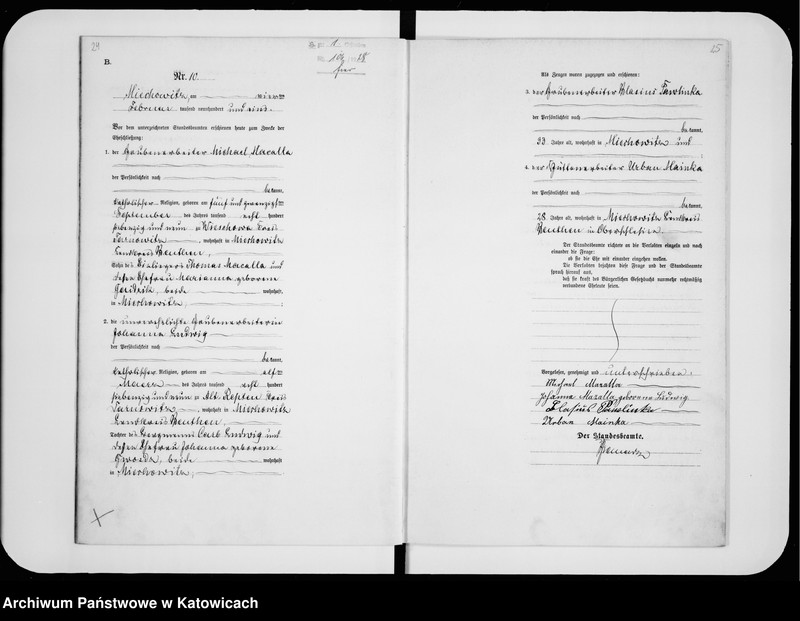 24
B.
Nr. 10.
Miechowitz, am vierten
Februar tausend neunhundert und eins.
Vor dem unterzeichneten Standesbeamten erschienen heute zum Zwecke der
Eheschließung:
1. der Grubenarbeiter Michael Macalla
der Persönlichkeit nach
bekannt,
katholischer Religion, geboren am fünf und zwanzigsten
September des Jahres tausend acht hundert
siebenzig und neun zu Wieschowa Kreis
Tarnowitz, wohnhaft in Miechowitz
Landkreis Beuthen,
Sohn des Einliegers Thomas Macalla und
dessen Ehefrau Marianna geborene
beide wohnhaft
in Miechowitz,
2. die unverehelichte Grubenarbeiterin
Johanna Ludwig
der Persönlichkeit nach
bekannt,
katholischer Religion, geboren am elften
des Jahres tausend acht hundert
siebenzig und neun zu Alt Repten Kreis
Tarnowitz, wohnhaft in Miechowitz
Landkreis Beuthen,
Tochter des Bergmanns Carl Ludwig und
dessen Ehefrau Johanna geborene
beide wohnhaft
in Miechowitz,
25
Als Zeugen waren zugezogen und erschienen:
3. der Grubenarbeiter Blasius
der Persönlichkeit nach
bekannt,
33 Jahre alt, wohnhaft in Miechowitz und
4. der Hüttenarbeiter Urban Mainka
der Persönlichkeit nach
bekannt,
28 Jahre alt, wohnhaft in Miechowitz Landkreis
Beuthen in Oberschlesien.
Der Standesbeamte richtete an die Verlobten einzeln und nach
einander die Frage:
ob sie die Ehe mit einander eingehen wollen.
Die Verlobten bejahten diese Frage und der Standesbeamte
sprach hierauf aus,
daß sie kraft des Bürgerlichen Gesetzbuchs nunmehr rechtmäßig
verbundene Eheleute seien.
Vorgelesen, genehmigt und unterschrieben:
Macalla
Johanna Macalla geborene Ludwig
Blasius
Urban Mainka
Der Standesbeamte.
Archiwum Państwowe w Katowicach